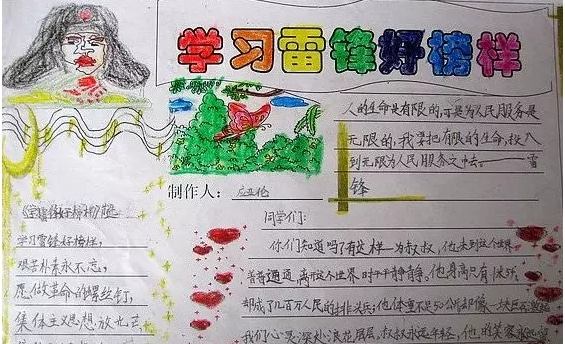 学习雷锋好榜样
人的生命是有限的,可是为人民服务是
无限的,我要把有限的生命,投入
到无限为人民服务之中去。——雷
锋
制作人:
《学习雷锋好榜样》
学习雷锋好榜样,
艰苦朴素永不忘,
愿做革命的螺丝钉,
集体主义思想放光芒,
同学们:
你们知道吗?有这样一为叔叔,他来到这个世界
普普通通,离开这个世界时平平静静。他身高只有
却成了几百万人民的排头兵;他体重不足50公斤却像一块巨
我们心灵深处浪花层层,叔叔永远年轻,他的笑容永远